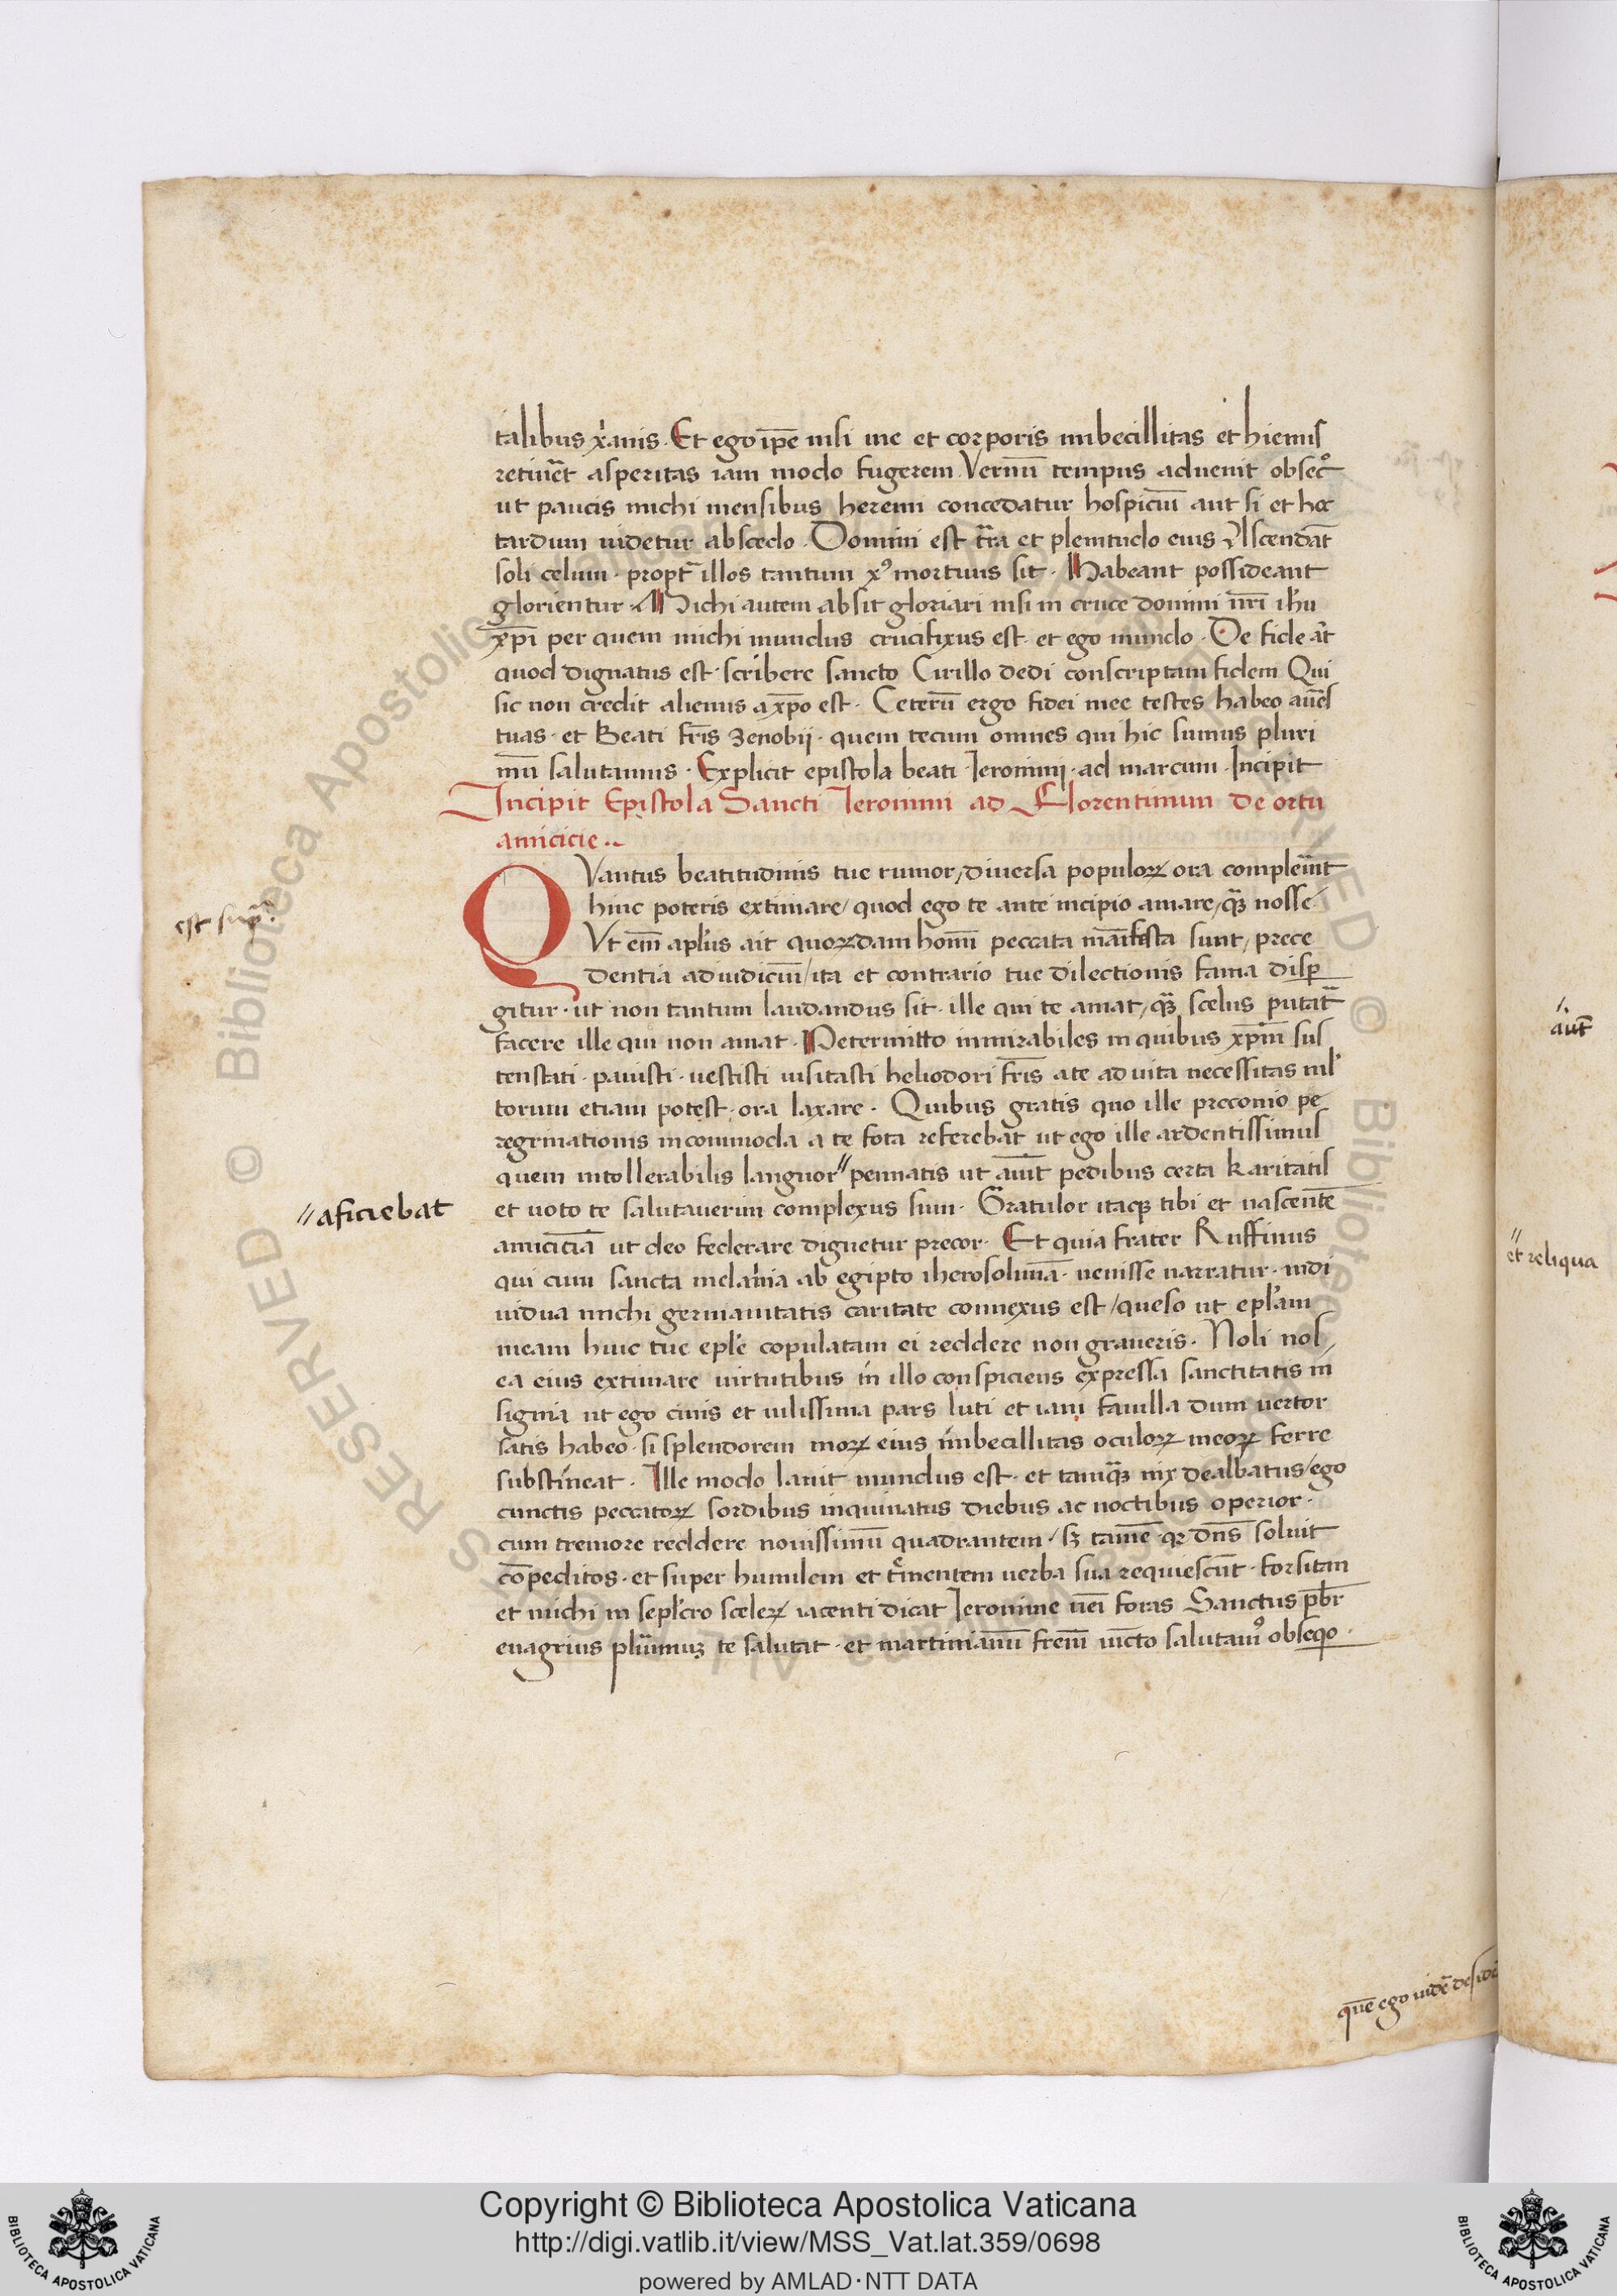 talibus xp̄ianis. Et ego ip̄e nisi me et corporis imbecillitas et hiemis
retinēt asperitas iam modo fugerem Vernū tempus aduenit obsec̊
ut paucis michi mensibus heremi concedatur hospiciū aut si et hoc
tardum uidetur abscedo. Domini est tr̄a et plenitudo eius Ascendāt
soli celum. propt̄ illos tantum xp̄s mortuus sit. Habeant possideant
glorientur. Michi autem absit gloriari nisi in cruce domini nr̄i ih̄u
xp̄i per quem michi mundus crucifixus est. et ego mundo. De fide āt
quod dignatus est. scribere sancto Cirillo dedi conscriptam fidem Qui
sic non credit alienus a xp̄o est. Ceterū ergo fidei mee testes habeo aur̄es
tuas. et Beati fr̄is Zenobij. quem tecum omnes qui hic sumus pluri
mū salutamus. Explicit epistola beati Ieronimi. ad marcum. Incipit
Incipit Epistola Sancti Ieronimi ad Florentinum de ortu
amicicie..
QVantus beatitudinis tue rumor, diuersa populoꝝ ora compleuīt
hinc poteris extimare, quod ego te ante incipio amare, quā nosse
Vt em̄ apl̄us ait quoꝝdam homī peccata manifesta sunt, prece
dentia ad iudiciū, ita et contrario tue dilectionis fama disp̱
gitur. ut non tantum laudandus sit. ille qui te amat, quā scelus putat̄
facere ille qui non amat. Petermitto inmirabiles in quibus xp̄m sus
tenstati. pauisti. uestisti uisitasti heliodori fr̄is a te ad uita necessitas ml̄
torum etiam potest. ora laxare. Quibus gratis quo ille preconio pe
regrinationis incommoda a te fota referebat ut ego ille ardentissimus
quem intollerabilis languor// pennatis ut aiūt pedibus certa karitatis
et uoto te salutauerim complexus sum. Gratulor itaqꝫ tibi et nascentē
amiciciā ut deo federare dignetur precor. Et quia frater Ruffinus
qui cum sancta melania ab egipto iherosolimā. uenisse narratur. indi
uidua michi germanitatis caritate connexus est, queso ut epl̄am
meam huic tue epl̄e copulatam ei reddere non graueris. Noli nos
ea eius extimare uirtutibus in illo conspiciens expressa sanctitatis in
signia ut ego cinis et uilissima pars luti et iam fauilla dum uertor
satis habeo. si splendorem moꝝ eius imbecillitas oculoꝝ meoꝝ ferre
substineat. Ille modo lauit mundus est. et tamquā nix dealbatus, ego
cunctis peccatoꝝ sordibus inquinatus diebus ac noctibus operior.
cum tremore reddere nouissimū quadrantem, sꝫ tamē. qꝛ dn̄s soluit
cōpeditos. et super humilem et tͥmentem uerba sua requiescūt. forsitan
et michi in sepl̄cro sceleꝝ iacenti dicat Ieronime uēi foras Sanctus pb̄r
euagrius plurimuꝫ te salutat. et martinianū frēm iūcto salutam̉ obseqo.
est sup̄a
//aficiebat
quē ego uidē desid
aut̄
//et reliqua
Copyright © Biblioteca Apostolica Vaticana
http://digi.vatlib.it/view/MSS_Vat.lat.359/0698
powered by AMLAD·NTT DATA
BIBLIOTECA APOSTOLICA VATICANA
BIBLIOTECA APOSTOLICA VATICANA